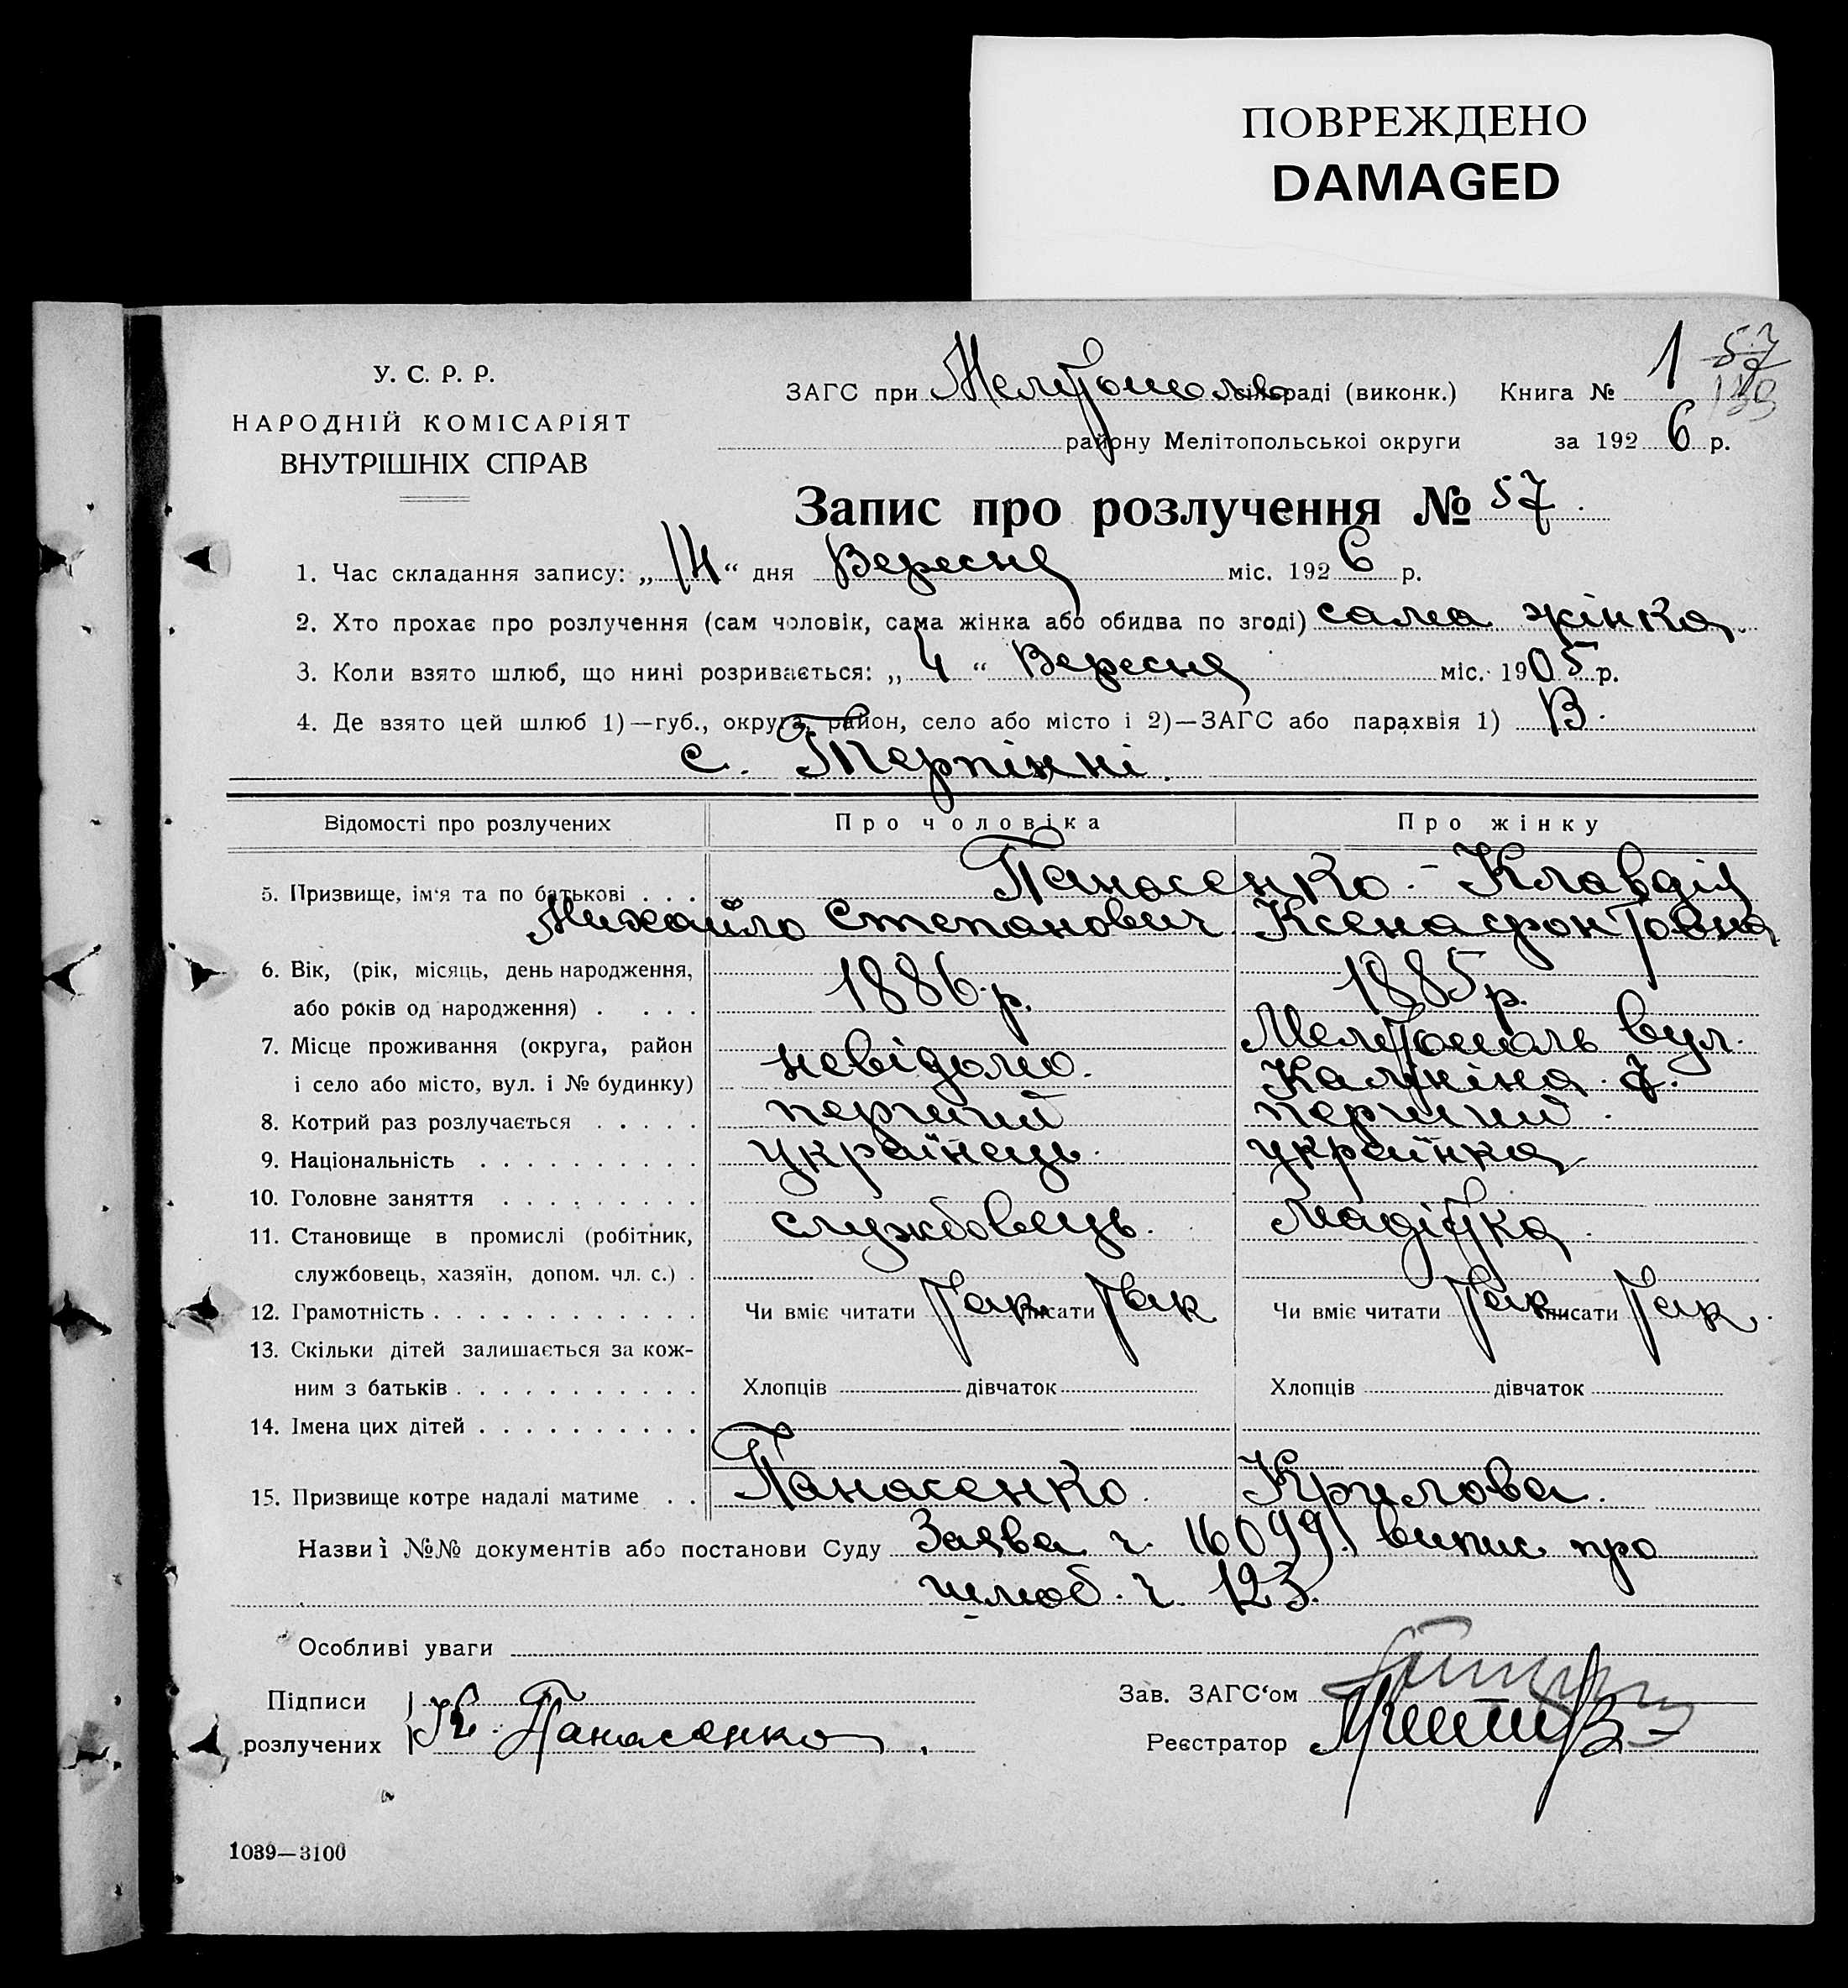 ПОВРЕЖДЕНО
DAMAGED
У. С. Р. Р.
НАРОДНІЙ КОМІСАРІЯТ
ВНУТРІШНІХ СПРАВ
ЗАГС при Мелітополь сільраді (виконк.) Книга № 1
району Мелітопольської округи за 1926 р.
Запис про розлучення № 57.
1. Час складання запису: „14“ дня Вересня міс. 1926 р.
2. Хто прохає про розлучення (сам чоловік, сама жінка або обидва по згоді) сама жінка.
3. Коли взято шлюб, що нині розривається: „4“ Вересня міс. 1905 р.
4. Де взято цей шлюб 1)—губ., округа, район, село або місто і 2)—ЗАГС або парахвія 1) В.
с. Терпінні.
Відомості про розлучених Про чоловіка Про жінку
5. Призвище, ім‘я та по батькові . . . Панасенко - Клавдія
Михайло Степанович Ксенафонтовна
6. Вік, (рік, місяць, день народження,
або років од народження) . . . . 1886 р. 1885 р.
7. Місце проживання (округа, район Мелітополь вул.
і село або місто, вул. і № будинку) невідомо. Калініна 7.
8. Котрий раз розлучається . . . . . перший перший.
9. Національність . . . . . . . . . . українець українка
10. Головне заняття . . . . . . . . .
11. Становище в промислі (робітник, службовець.
службовець, хазяїн, допом. чл. с.) .
12. Грамотність . . . . . . . . . . . . Чи вміє читати так писати так Чи вміє читати так писати так.
13. Скільки дітей залишається за кож-
ним з батьків . . . . . . . . . . . Хлопців дівчаток Хлопців дівчаток
14. Імена цих дітей . . . . . . . . . .
15. Призвище котре надалі матиме . . Панасенко. Крилова.
Назви і №№ документів або постанови Суду Заява ч. 16099. випис про
шлюб. ч. 123.
Особливі уваги
Підписи
розлучених К. Панасенко.
Зав. ЗАГС‘ом
Реєстратор
1039—3100